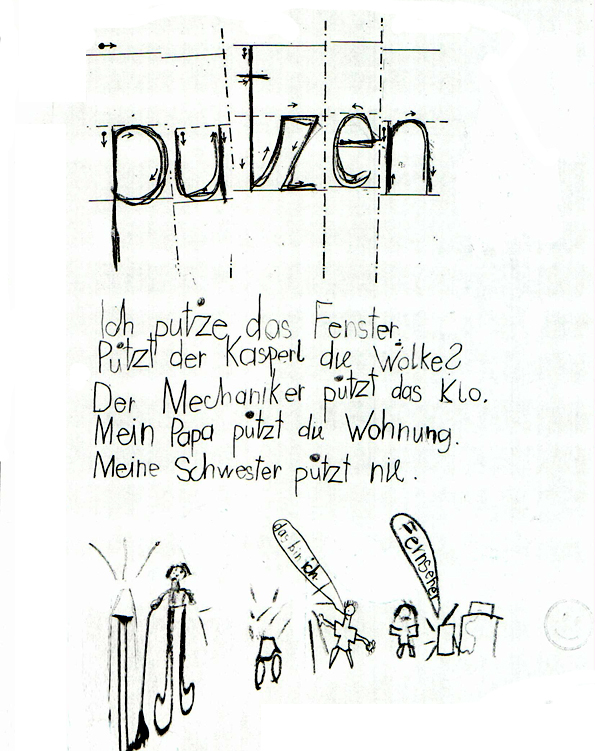 putzen
Ich putze das Fenster.
Putzt der Kasperl die Wolke?
Der Mechaniker putzt das Klo.
Mein Papa putzt die Wohnung.
Meine Schwester putzt nie.
das bin ich!
Fernseher